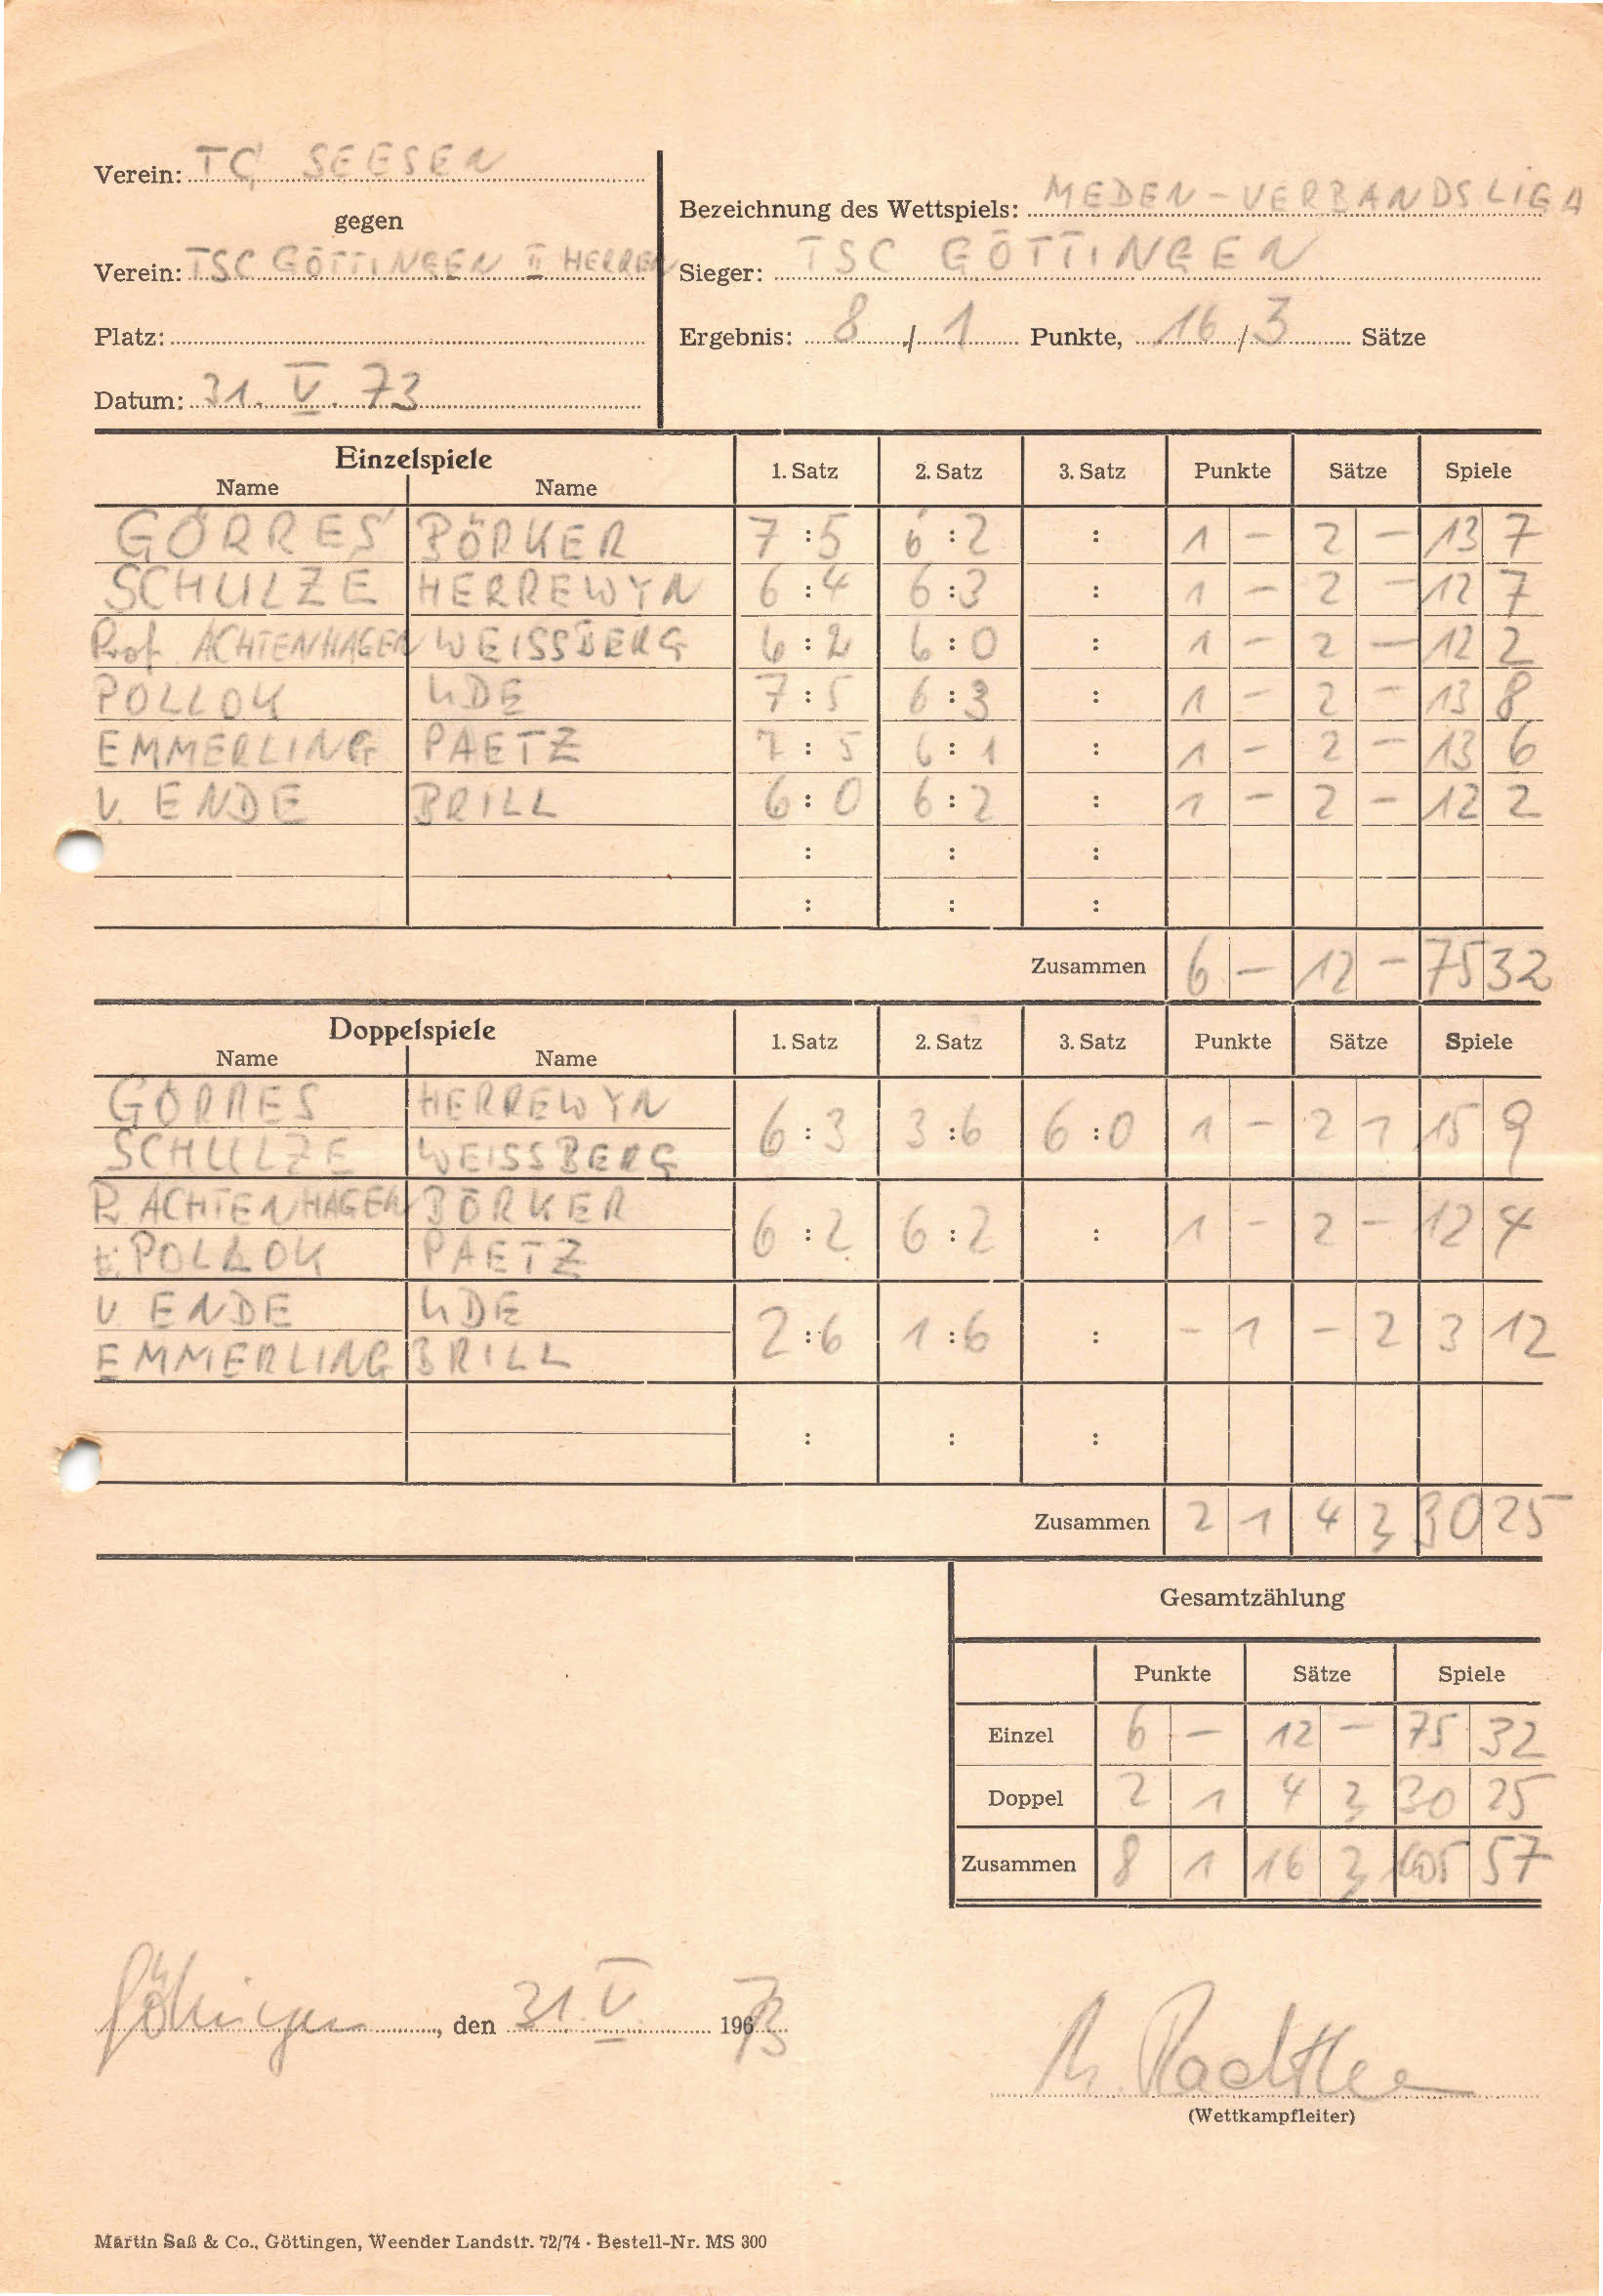 Verein: TC SEESEN
gegen
Verein: TSC GÖTTINGEN II HERREN
Platz:
Datum: 31. V. 73
Bezeichnung des Wettspiels: MEDEN-VERBANDSLIGA
Sieger: TSC GÖTTINGEN
Ergebnis: 8 / 1 Punkte, 16 / 3 Sätze
Einzelspiele
Name Name 1. Satz 2. Satz 3. Satz Punkte Sätze Spiele
GÖRRES BÖRKER 7 : 5 6 : 2 : 1 - 2 - 13 7
SCHULZE HERREWYN 6 : 4 6 : 3 : 1 - 2 - 12 7
Prof. ACHTENHAGEN WEISSBERG 6 : 2 6 : 0 : 1 - 2 - 12 2
POLLOK UDE 7 : 5 6 : 3 : 1 - 2 - 13 8
EMMERLING PAETZ 7 : 5 6 : 1 : 1 - 2 - 13 6
V. ENDE BRILL 6 : 0 6 : 2 : 1 - 2 - 12 2
: : :
: : :
Zusammen 6 - 12 - 75 32
Doppelspiele
Name Name 1. Satz 2. Satz 3. Satz Punkte Sätze Spiele
GÖRRES HERREWYN
6 : 3 3 : 6 6 : 0 1 - 2 1 15 9
SCHULZE WEISSBERG
P. ACHTENHAGEN BÖRKER
6 : 2 6 : 2 : 1 - 2 - 12 4
POLLOK PAETZ
V ENDE UDE
2 : 6 1 : 6 : - 1 - 2 3 12
EMMERLING BRILL
: : :
Zusammen 2 1 4 3 30 25
Gesamtzählung
Punkte Sätze Spiele
Einzel 6 - 12 - 75 32
Doppel 2 1 4 3 30 25
Zusammen 8 1 16 3 105 57
Göttingen, den 31. V. 1973
(Wettkampfleiter)
Martin Saß & Co., Göttingen, Weender Landstr. 72/74 · Bestell-Nr. MS 300